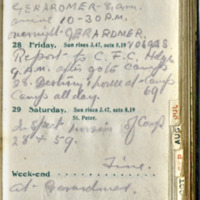 GERARDMER - 8.am.
arrival 10-30 P.M.
overnight GERARDMER.
28 Friday. Sun rises 3.47, sets 8.19
VOSGES
Report to C.F.C. Hdqrs
9. A.M. after go to Camp
28.
Camp all day. 69
29 Saturday. Sun rises 3.47, sets 8.19
St. Peter.
Inspect of Camp
28 & 59.
Fine.
Week-end
At Gerardmer.
AUG
JUL